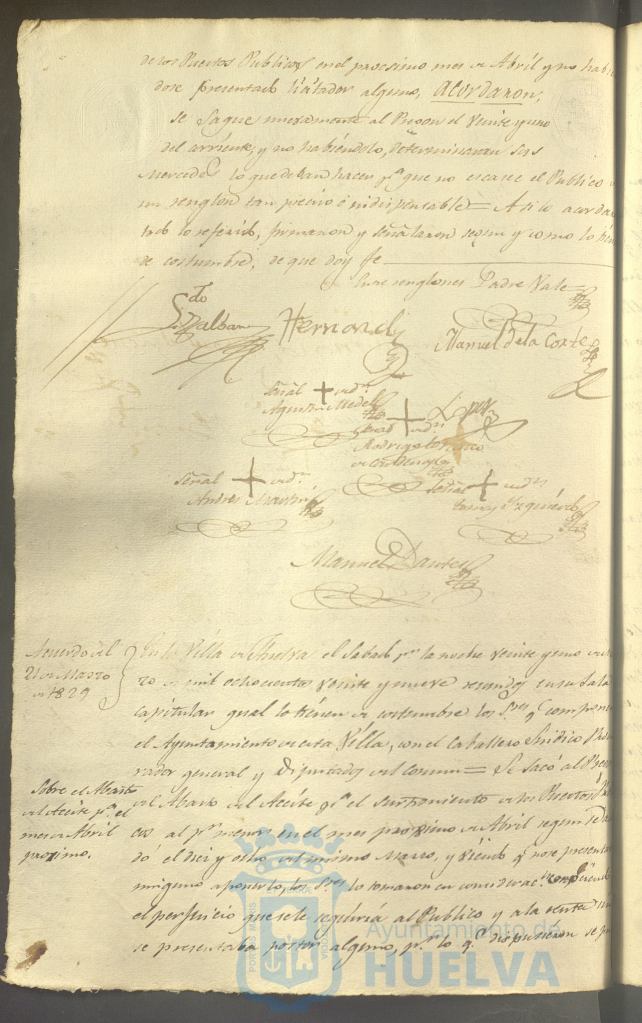 de los Puestos Publicos en el procsimo mes de Abril y no habi
dose presentado licitador alguno, acordaron,
se saque nuevamente al Pregon el veinte y uno
del corriente, y no habiendolo, determinaran sus
Mercedes lo que deban hacer pª que no escasee el Publico
un renglon tan preciso é indispensable = Asi lo acorda
lo referido, firmaron y señalaron segun y como lo tienen
de costumbre, de que doy fe
Entre renglones Padre Vale
Hernandez
Manuel de la Corte
señal + de
Agustin Medel
Lopez
señal + de
Rodrigo
señal + de
Andres Martin
señal + de
Izquierdo
Manuel
Acuerdo del
21 de Marzo
de 1829
En la Villa de Huelva el Sabado pr la noche veinte y uno de
zo de mil ochocientos veinte y nueve reunidos en su Sala
capitular qual lo tienen de costumbre los Sres q componen
el Ayuntamiento de esta Villa, con el Caballero Sindico Procu
rador general y Diputados del comun = Se sacó al Pregon
Sobre el Abasto
del Aceite pª el
mes de Abril
proximo.
el Abasto del Aceite pª el surtimiento de los Puestos
cos al pr menor en el mes proximo de Abril segun se
dó el diez y ocho del mismo Marzo, y viendo q no se presenta
ninguno a ponerlo, los Sres lo tomaron en considerac.n
el perjuicio que se le seguiria al Publico y a la renta
se presentaba postor alguno, pr lo q dispusieron se
Ayuntamiento de
HUELVA